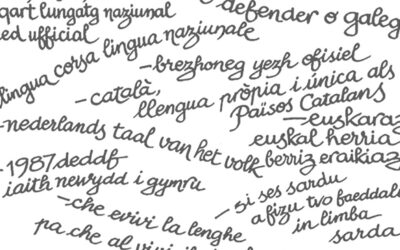 qart lungatg naziunal
ed ufficial
defender o galeg
lingua corsa lingua naziunale
-brezhoneg yezh ofisiel
-català,
llengua pròpia i única als
Països Catalans
-nederlands taal van het volk
-euskaraz
euskal herria
berriz eraikiaz
-1987, deddf
iaith newydd i gymru
-che evivi la lenghe
pa che al vivi il
-si ses sardu
a fizu tvo faeddali
in limba
sarda